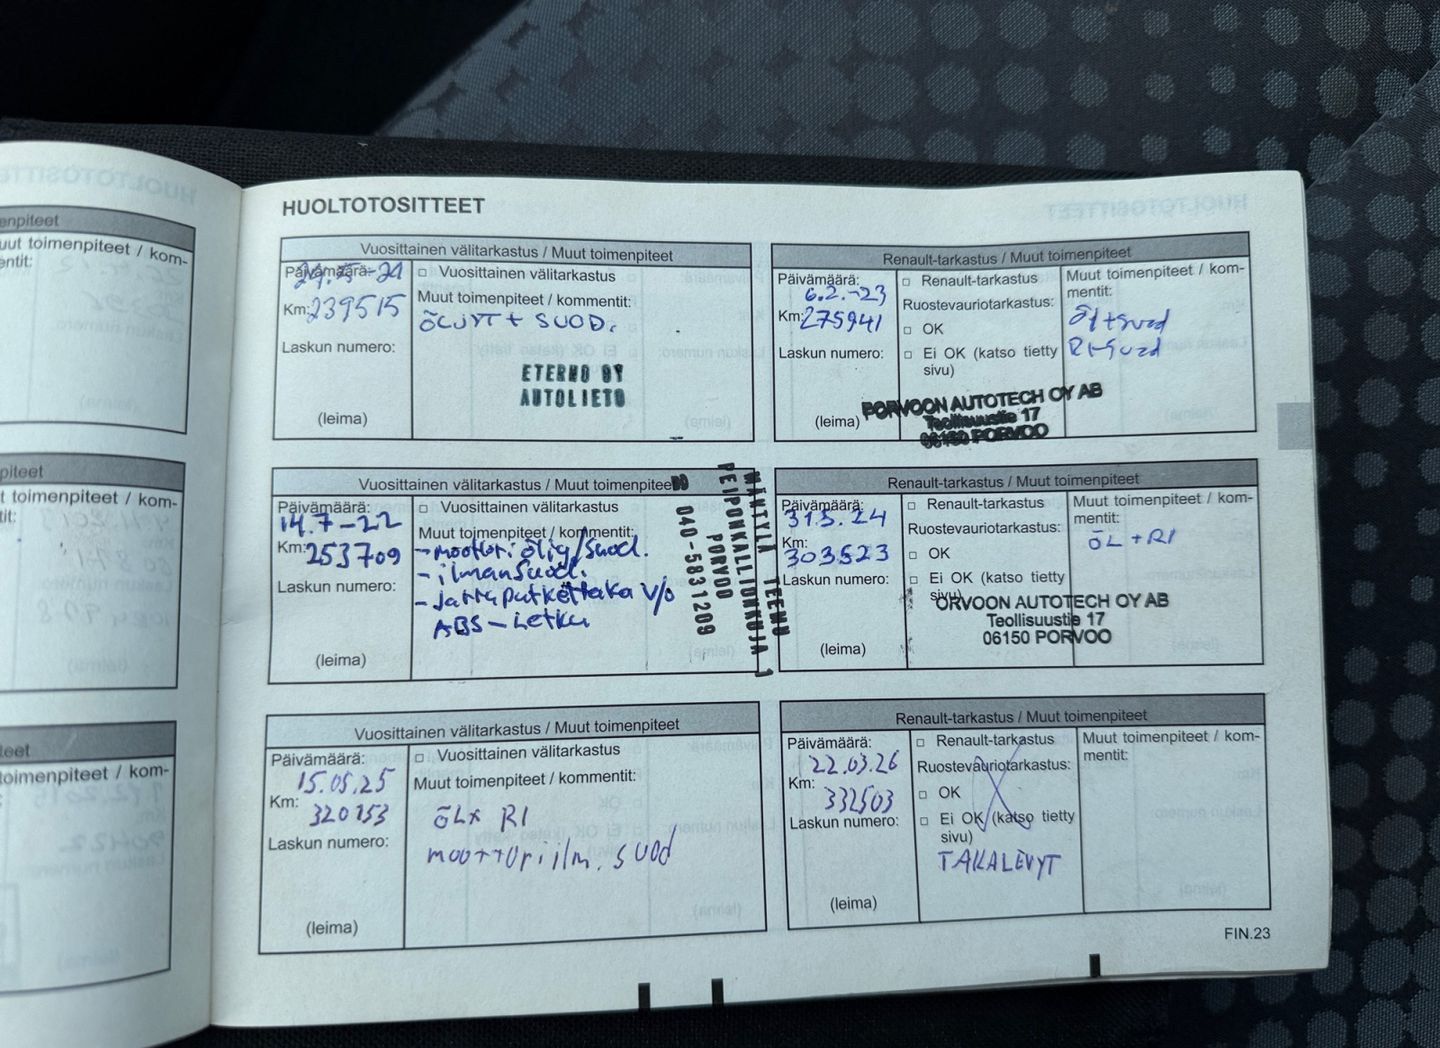 HUOLTOTOSITTEET
Vuosittainen välitarkastus / Muut toimenpiteet
Päivämäärä:
Km: 239515
Laskun numero:
(leima)
□ Vuosittainen välitarkastus
Muut toimenpiteet / kommentit:
ÖLJYT + SUOD.
ETERNO OY
AUTOLIETO
Renault-tarkastus / Muut toimenpiteet
Päivämäärä:
6.2.-23
Km: 275941
Laskun numero:
(leima)
□ Renault-tarkastus
Ruostevauriotarkastus:
□ OK
□ Ei OK (katso tietty
sivu)
Muut toimenpiteet / kom-
mentit:
PORVOON AUTOTECH OY AB
Teollisuustie 17
06150 PORVOO
Vuosittainen välitarkastus / Muut toimenpiteet
Päivämäärä:
14.7-22
Km: 253709
Laskun numero:
(leima)
□ Vuosittainen välitarkastus
Muut toimenpiteet / kommentit:
- moottoriöljy/suod.
- ilmansuod.
- Jarruputkettaka v/o
ABS-Letku
MÄNTYLÄ TEEMU
PEIPONKALLIONKUJA 1
PORVOO
040-5831209
Renault-tarkastus / Muut toimenpiteet
Päivämäärä:
31.5.24
Km:
303523
Laskun numero:
(leima)
□ Renault-tarkastus
Ruostevauriotarkastus:
□ OK
□ Ei OK (katso tietty
sivu)
Muut toimenpiteet / kom-
mentit:
ÖL + RI
ORVOON AUTOTECH OY AB
Teollisuustie 17
06150 PORVOO
Vuosittainen välitarkastus / Muut toimenpiteet
Päivämäärä:
15.05.25
Km:
320153
Laskun numero:
(leima)
□ Vuosittainen välitarkastus
Muut toimenpiteet / kommentit:
ÖL+ RI
moottori ilm. suod
Renault-tarkastus / Muut toimenpiteet
Päivämäärä:
22.03.26
Km:
332503
Laskun numero:
(leima)
□ Renault-tarkastus
Ruostevauriotarkastus:
□ OK
□ Ei OK (katso tietty
sivu)
TAKALEVYT
Muut toimenpiteet / kom-
mentit:
FIN.23